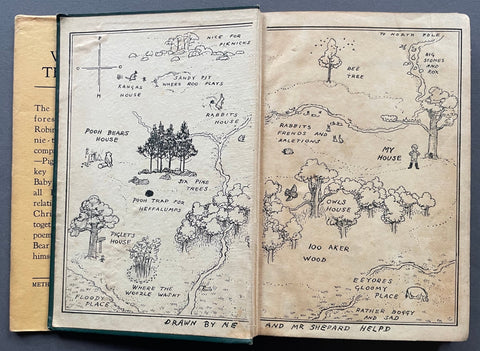 The
fores
Robin
nie-t
comp
—Pig
key
Baby
all
relati
Chri
toget
poem
Bear
hims
METH
NICE FOR
PIKNICKS
KANGAS
HOUSE
SANDY PIT
WHERE ROO PLAYS
RABBITS
HOUSE
POOH BEARS
HOUSE
SIX PINE
TREES
POOH TRAP FOR
HEFFALUMPS
PIGLETS
HOUSE
WHERE THE
WOOZLE WASNT
FLOODY
PLACE
DRAWN BY ME
TO NORTH POLE
BIG
STONES
AND
ROX
BEE
TREE
RABBITS
FRENDS AND
RALETIONS
MY
HOUSE
OWLS
HOUSE
100 AKER
WOOD
EEYORES
GLOOMY
PLACE
RATHER BOGGY
AND SAD
AND MR SHEPARD HELPD